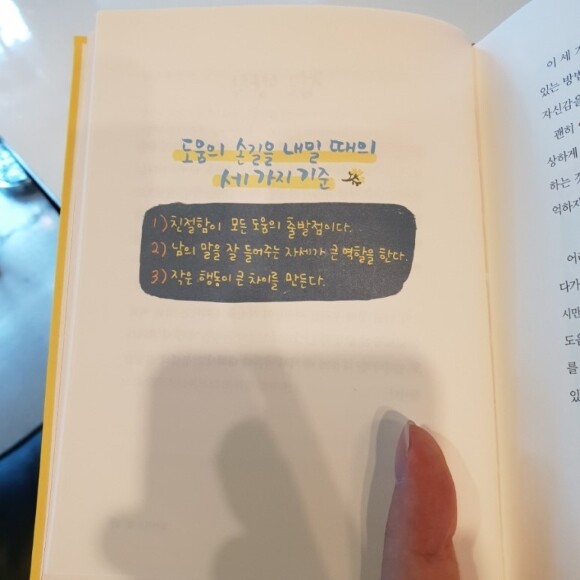 도움의 손길을 내밀 때의
세 가지 기준
1) 친절함이 모든 도움의 출발점이다.
2) 남의 말을 잘 들어주는 자세가 큰 역할을 한다.
3) 작은 행동이 큰 차이를 만든다.
이 세
있는 방법
자신감을
괜히
상하게
하는 것
억하자
어
다가
시만
도움
를
있